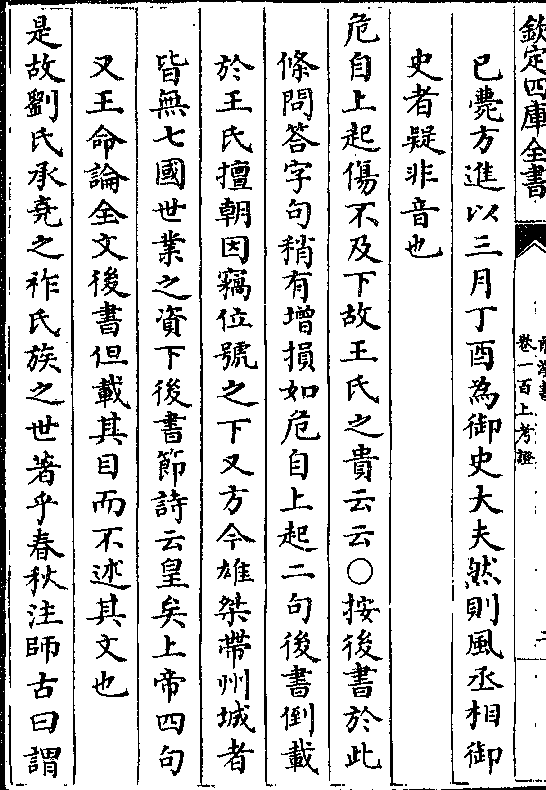 欽定四庫全書
卷一百上考證
已薨方進以三月丁酉為御史大夫然則風丞相御
史者疑非音也
危自上起傷不及下故王氏之貴云云○按後書於此
條問答字句稍有增損如危自上起二句後書倒載
於王氏擅朝因竊位號之下又方今雄桀帶州城者
皆無七國世業之資下後書節詩云皇矣上帝四句
又王命論全文後書但載其目而不述其文也
是故劉氏承堯之祚氏族之世著乎春秋注師古曰謂